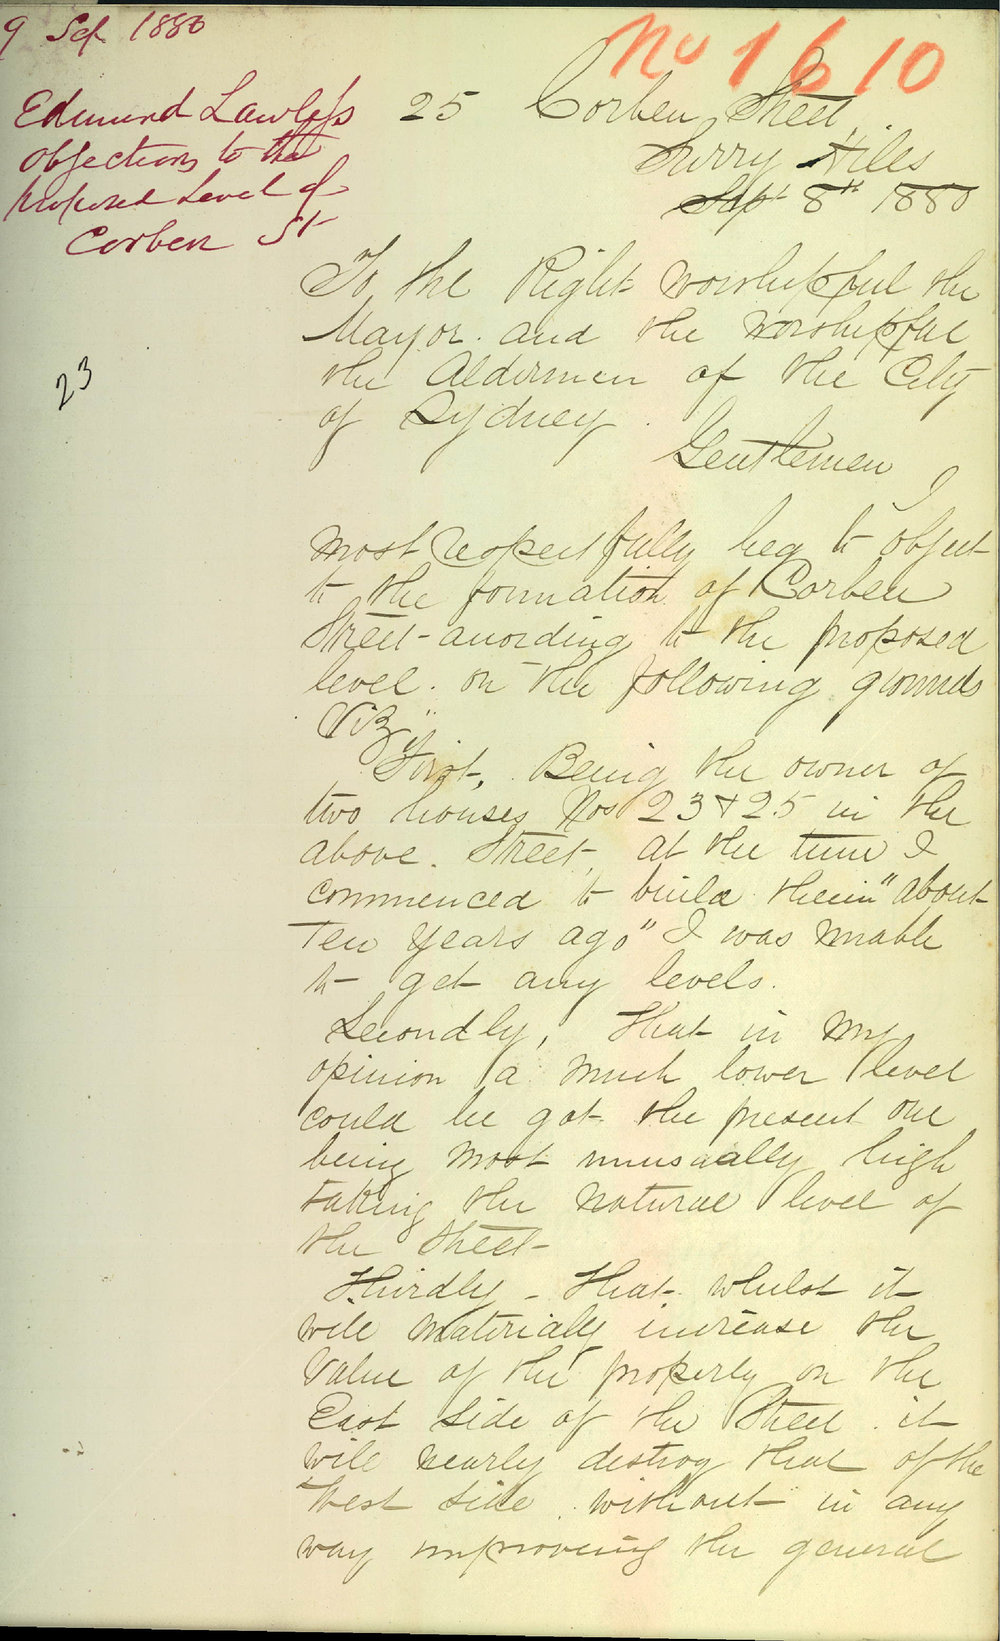 9 Sep 1880
No 1610
Edmund Lawless
objections to the
proposed Level of
Corben St
23
25 Corben Street
Surry Hills
Sept 8th 1880
To the Right Worshipful the
Mayor. and the Worshipful
the Aldermen of the City
of Sydney.
Gentlemen
I
most respectfully beg to object
to the formation of Corben
Street according to the proposed
level. on the following grounds
Viz"
First, Being the owner of
two houses Nos 23 & 25 in the
above. Street, at the time I
commenced to build therein "about
Ten Years ago" I was unable
to get any levels.
Secondly, that in my
opinion a much lower level
could be got the present one
being most unusually high
taking the natural level of
the street
Thirdly - that whilst it
will materially increase the
Value of the property on the
East side of the Street it
will nearly destroy that of the
West side without in any
way improving the general